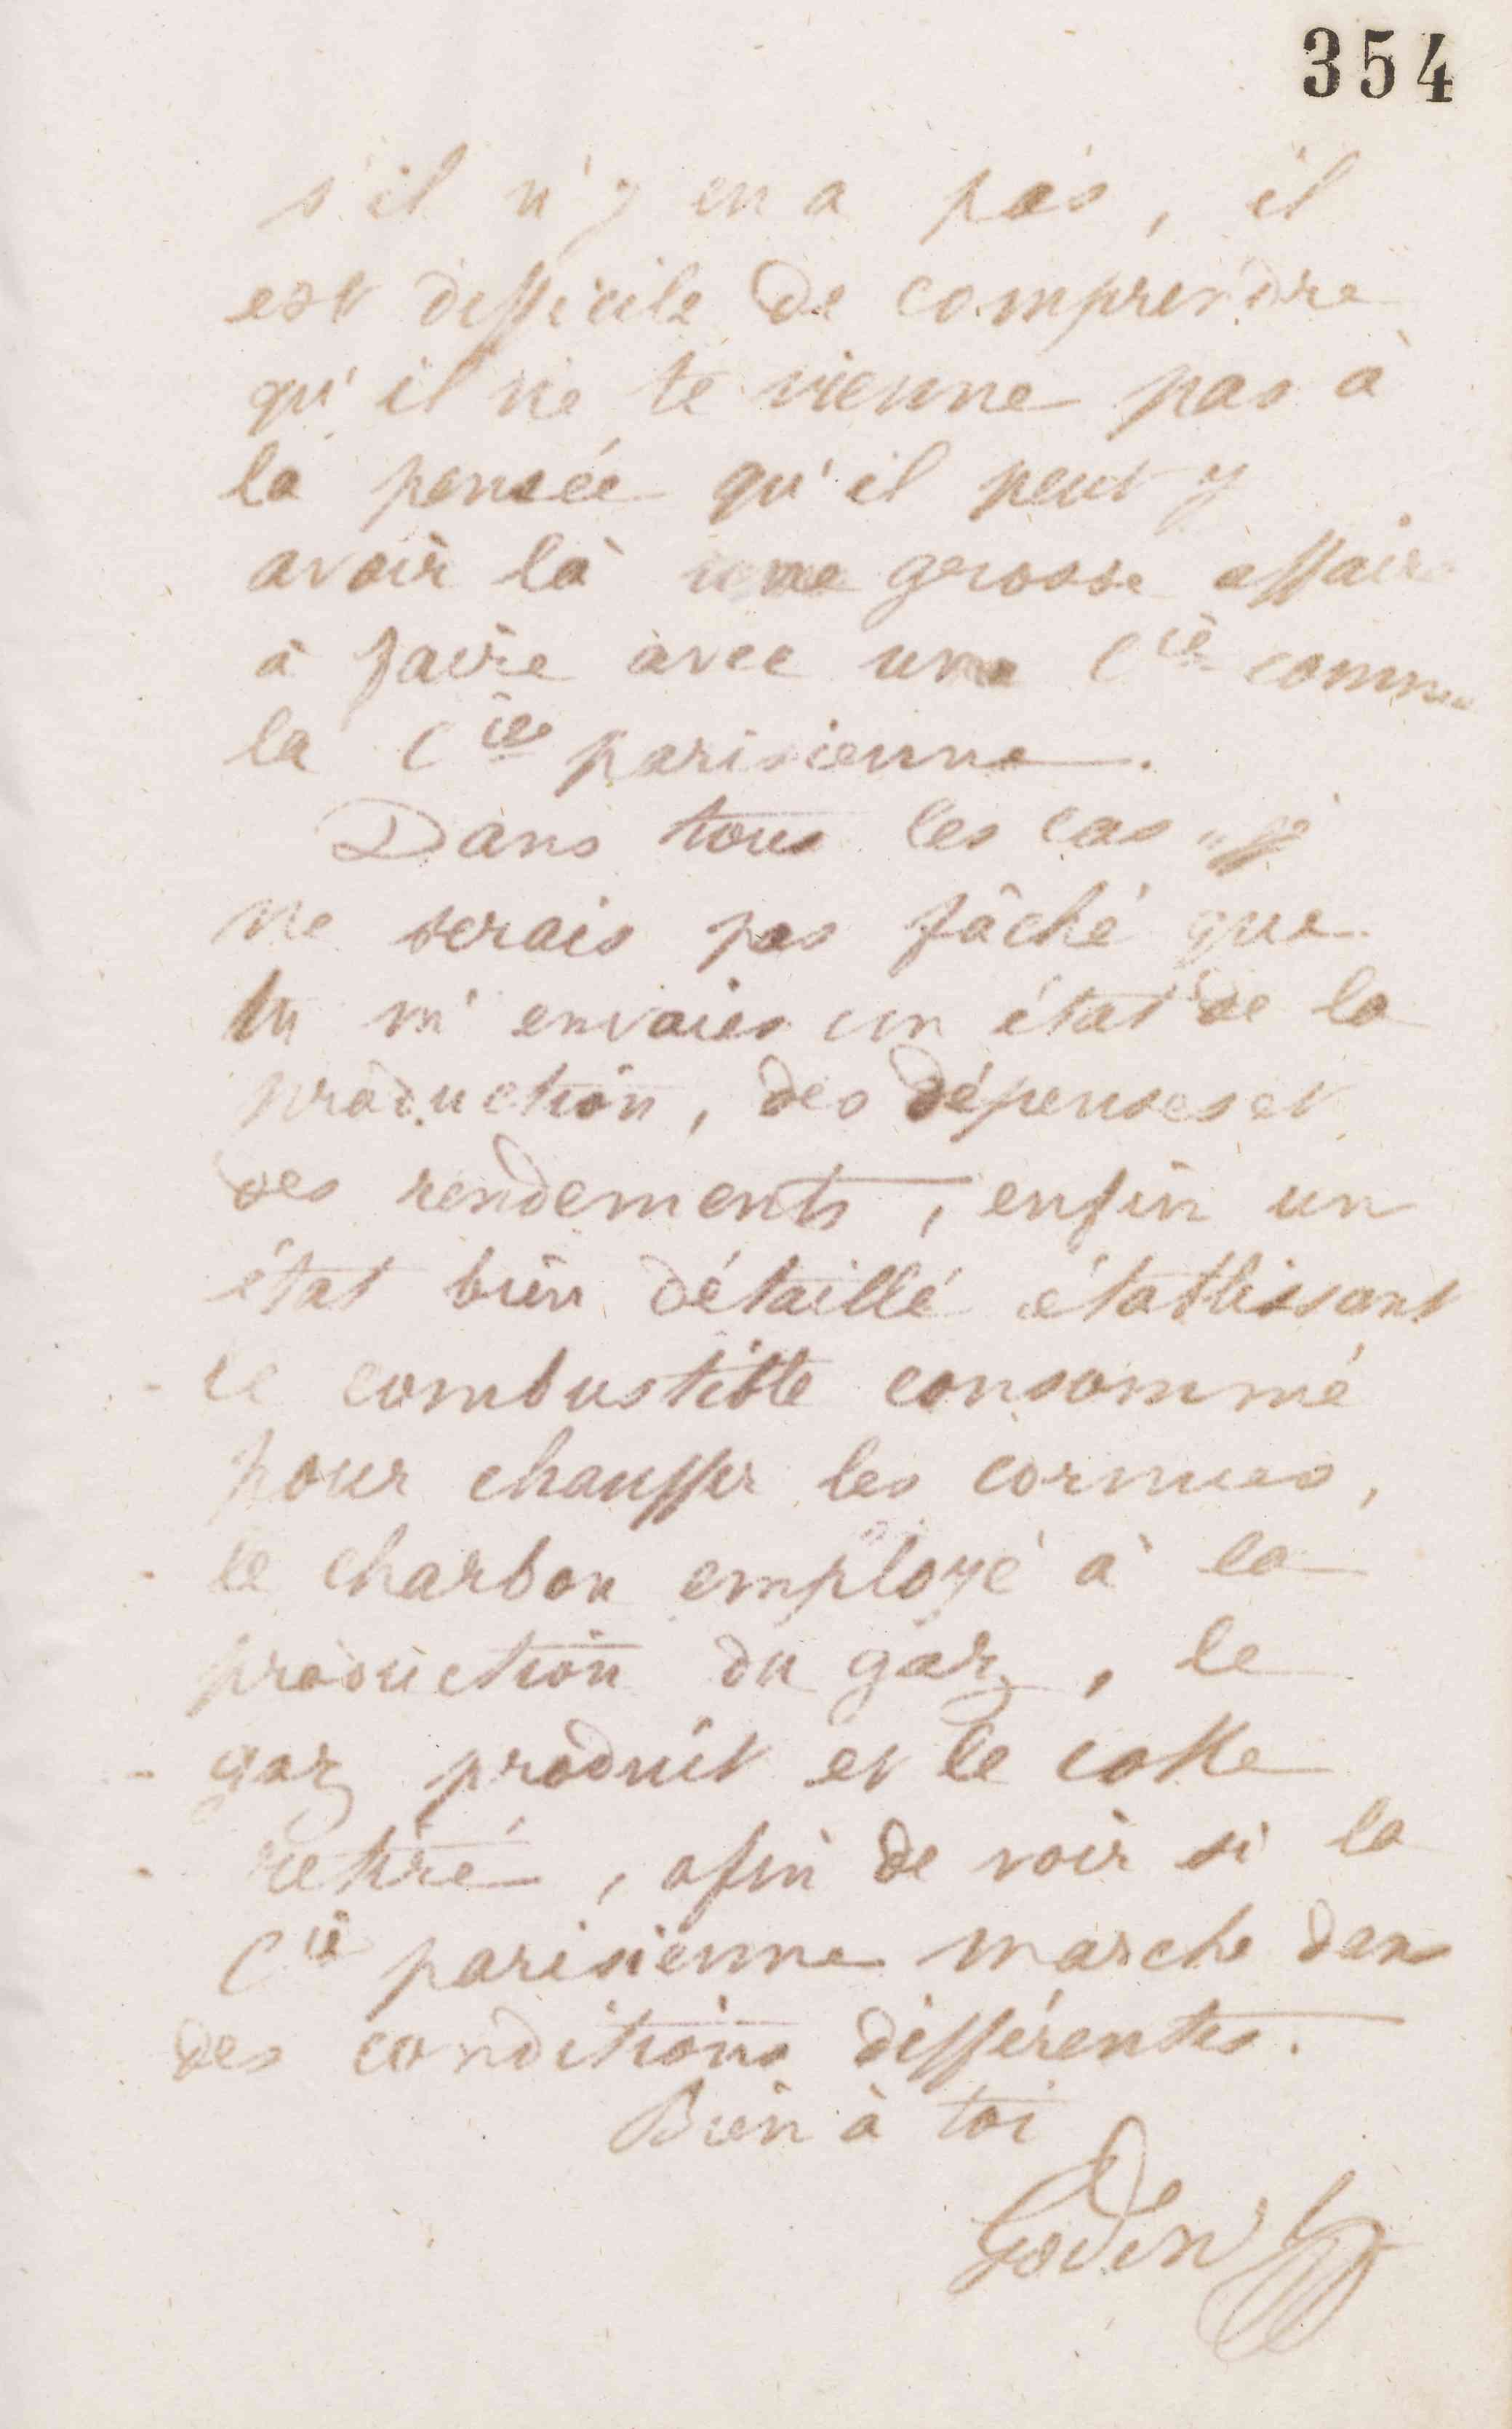 354
s'il n'y en a pas, il
est difficile de comprendre
qu'il ne te vienne pas à
la pensée qu'il peut y
avoir là une grosse affaire
à faire avec une Cie comme
la Cie parisienne.
Dans tous les cas, je
ne serais pas fâché que
tu m'envoies un état de la
production, des dépenses et
des rendements, enfin un
état bien détaillé établissant
le combustible consommé
pour chauffer les cornues,
le charbon employé à la
production du gaz, le
gaz produit et le coke
retiré, afin de voir si la
Cie parisienne marche dans
des conditions différentes.
Bien à toi
Godin